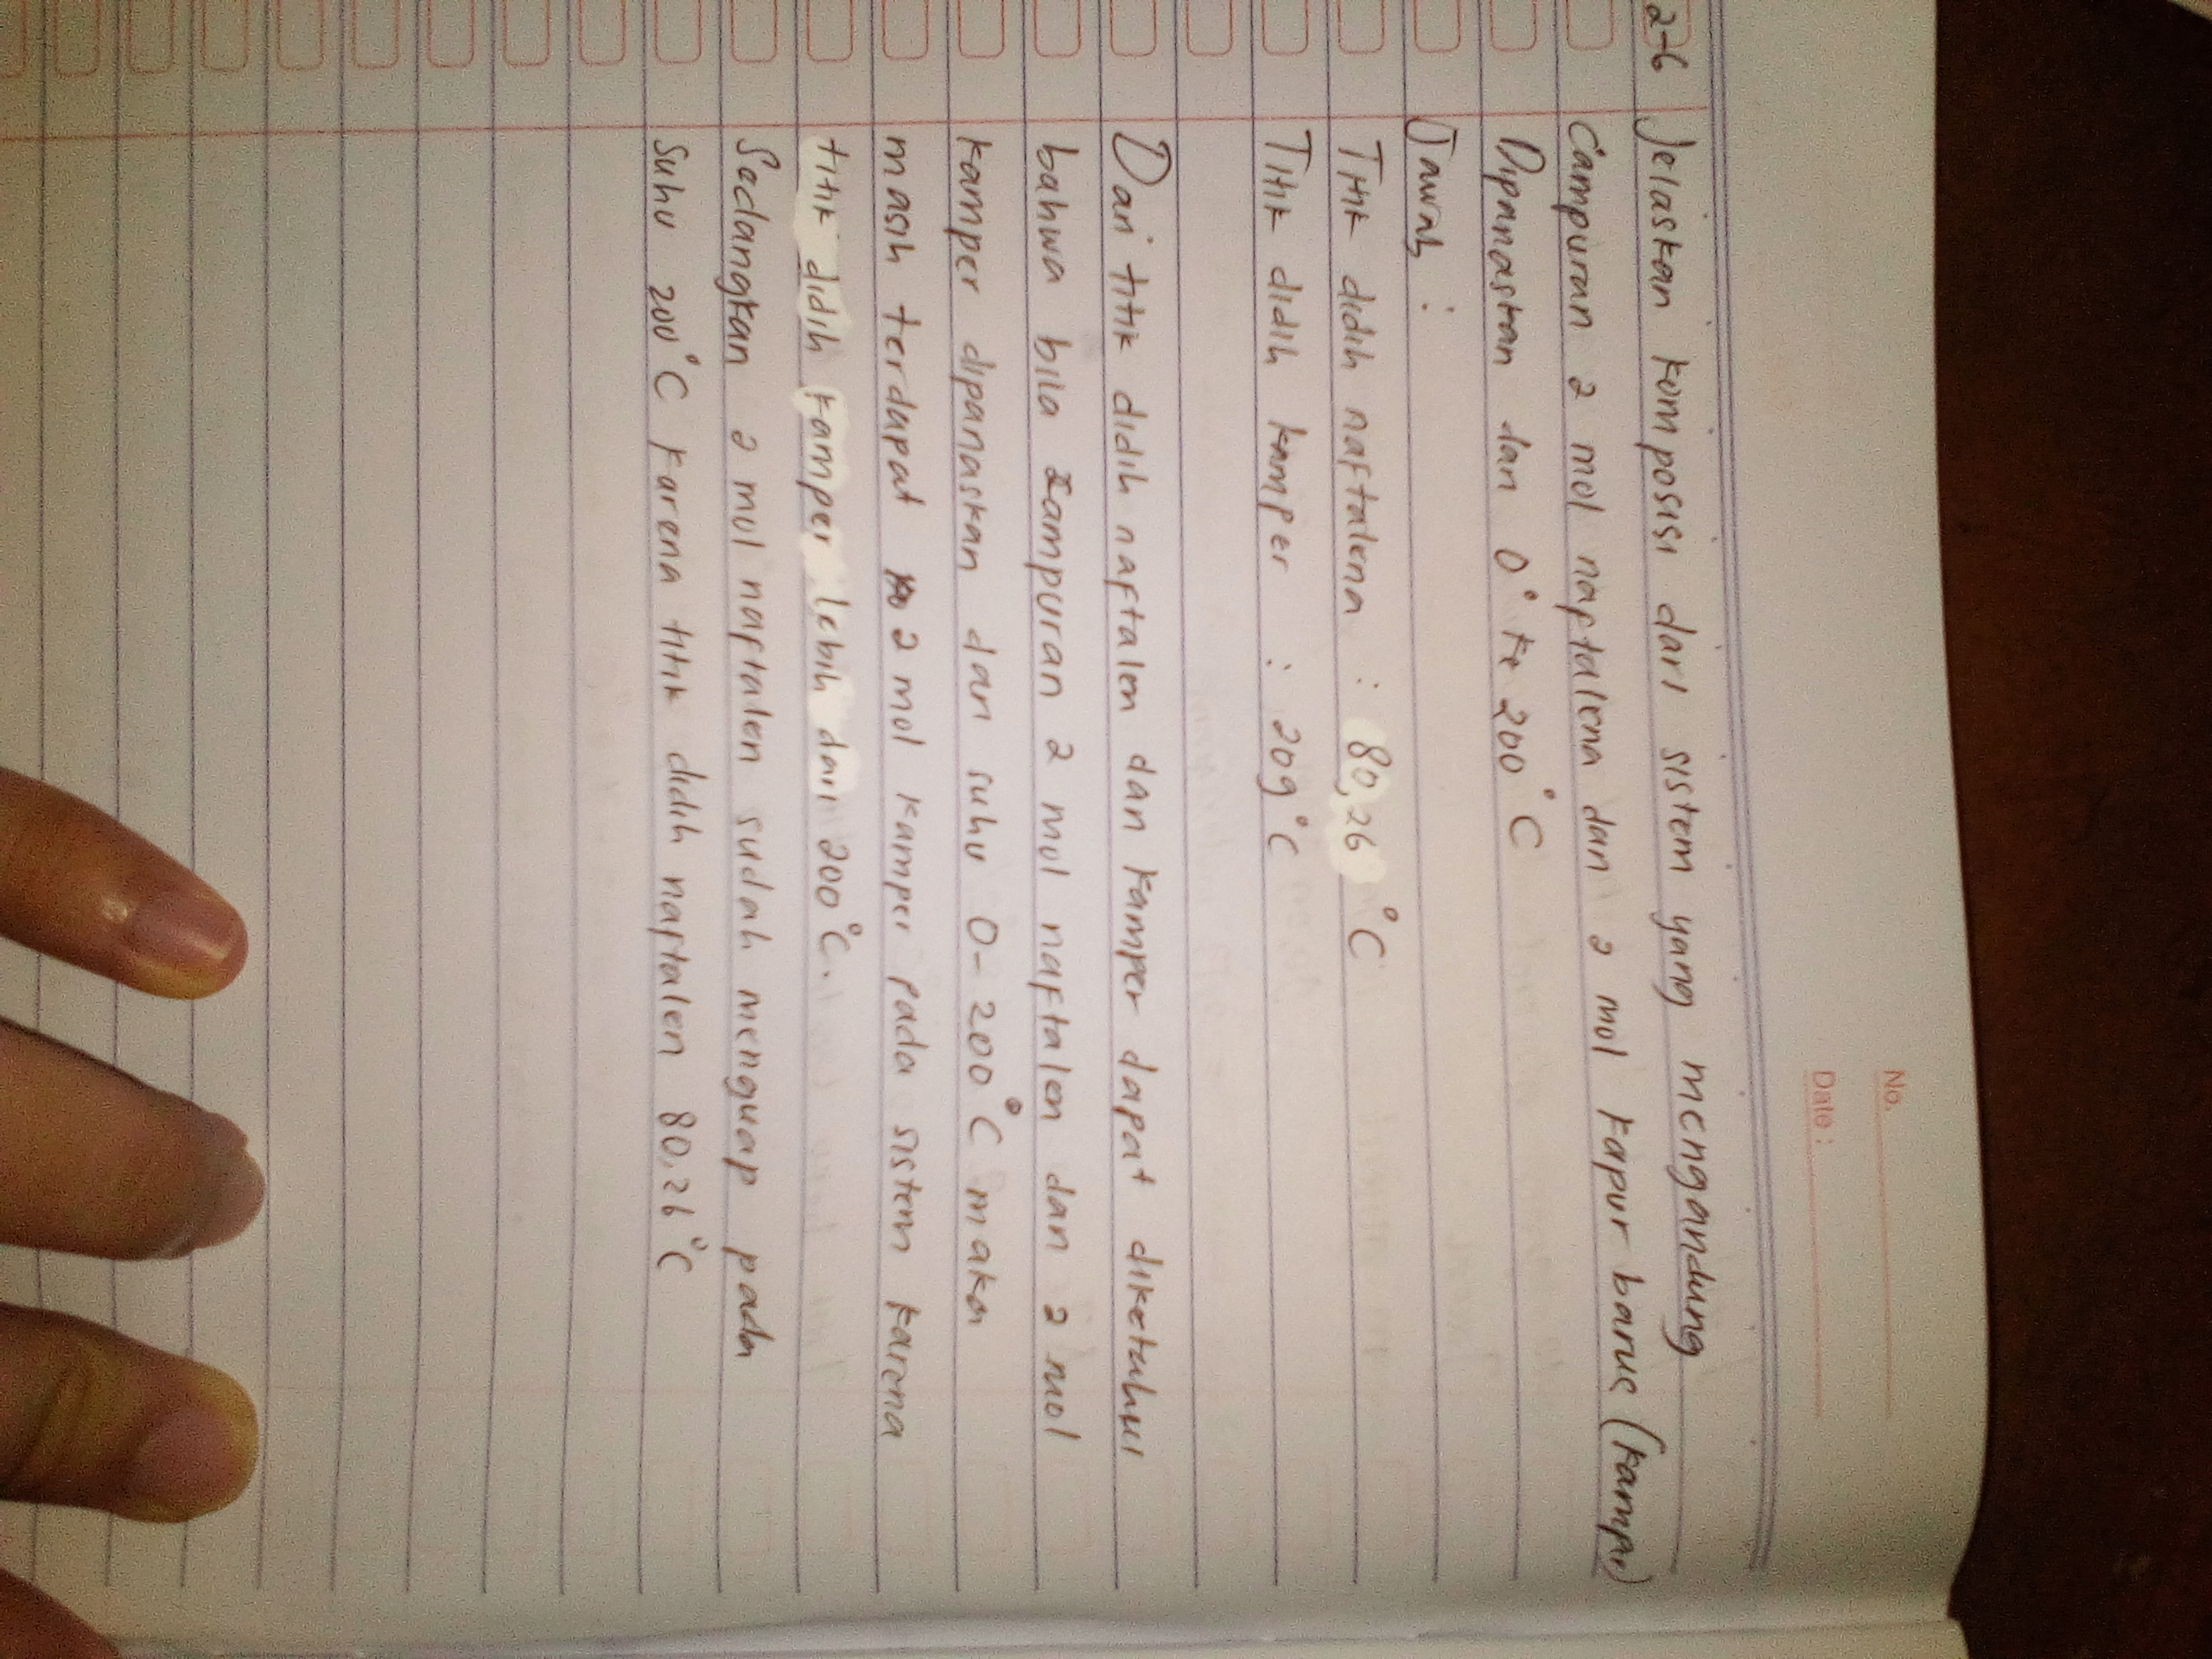 No.
Date :
2-6 Jelaskan komposisi dari sistem yang mengandung
Campuran 2 mol naftalena dan 2 mol kapur barus (kamper)
Dipanaskan dari 0° ke 200°C
Jawab :
Titik didih naftalena : 80,26 °C
Titik didih kamper : 209°C
Dari titik didih naftalen dan kamper dapat diketahui
bahwa bila campuran 2 mol naftalen dan 2 mol
kamper dipanaskan dari suhu 0-200°C maka
masih terdapat 2 mol kamper pada sistem karena
titik didih kamper lebih dari 200°C.
Sedangkan 2 mol naftalen sudah menguap pada
Suhu 200°C karena titik didih naftalen 80,26°C